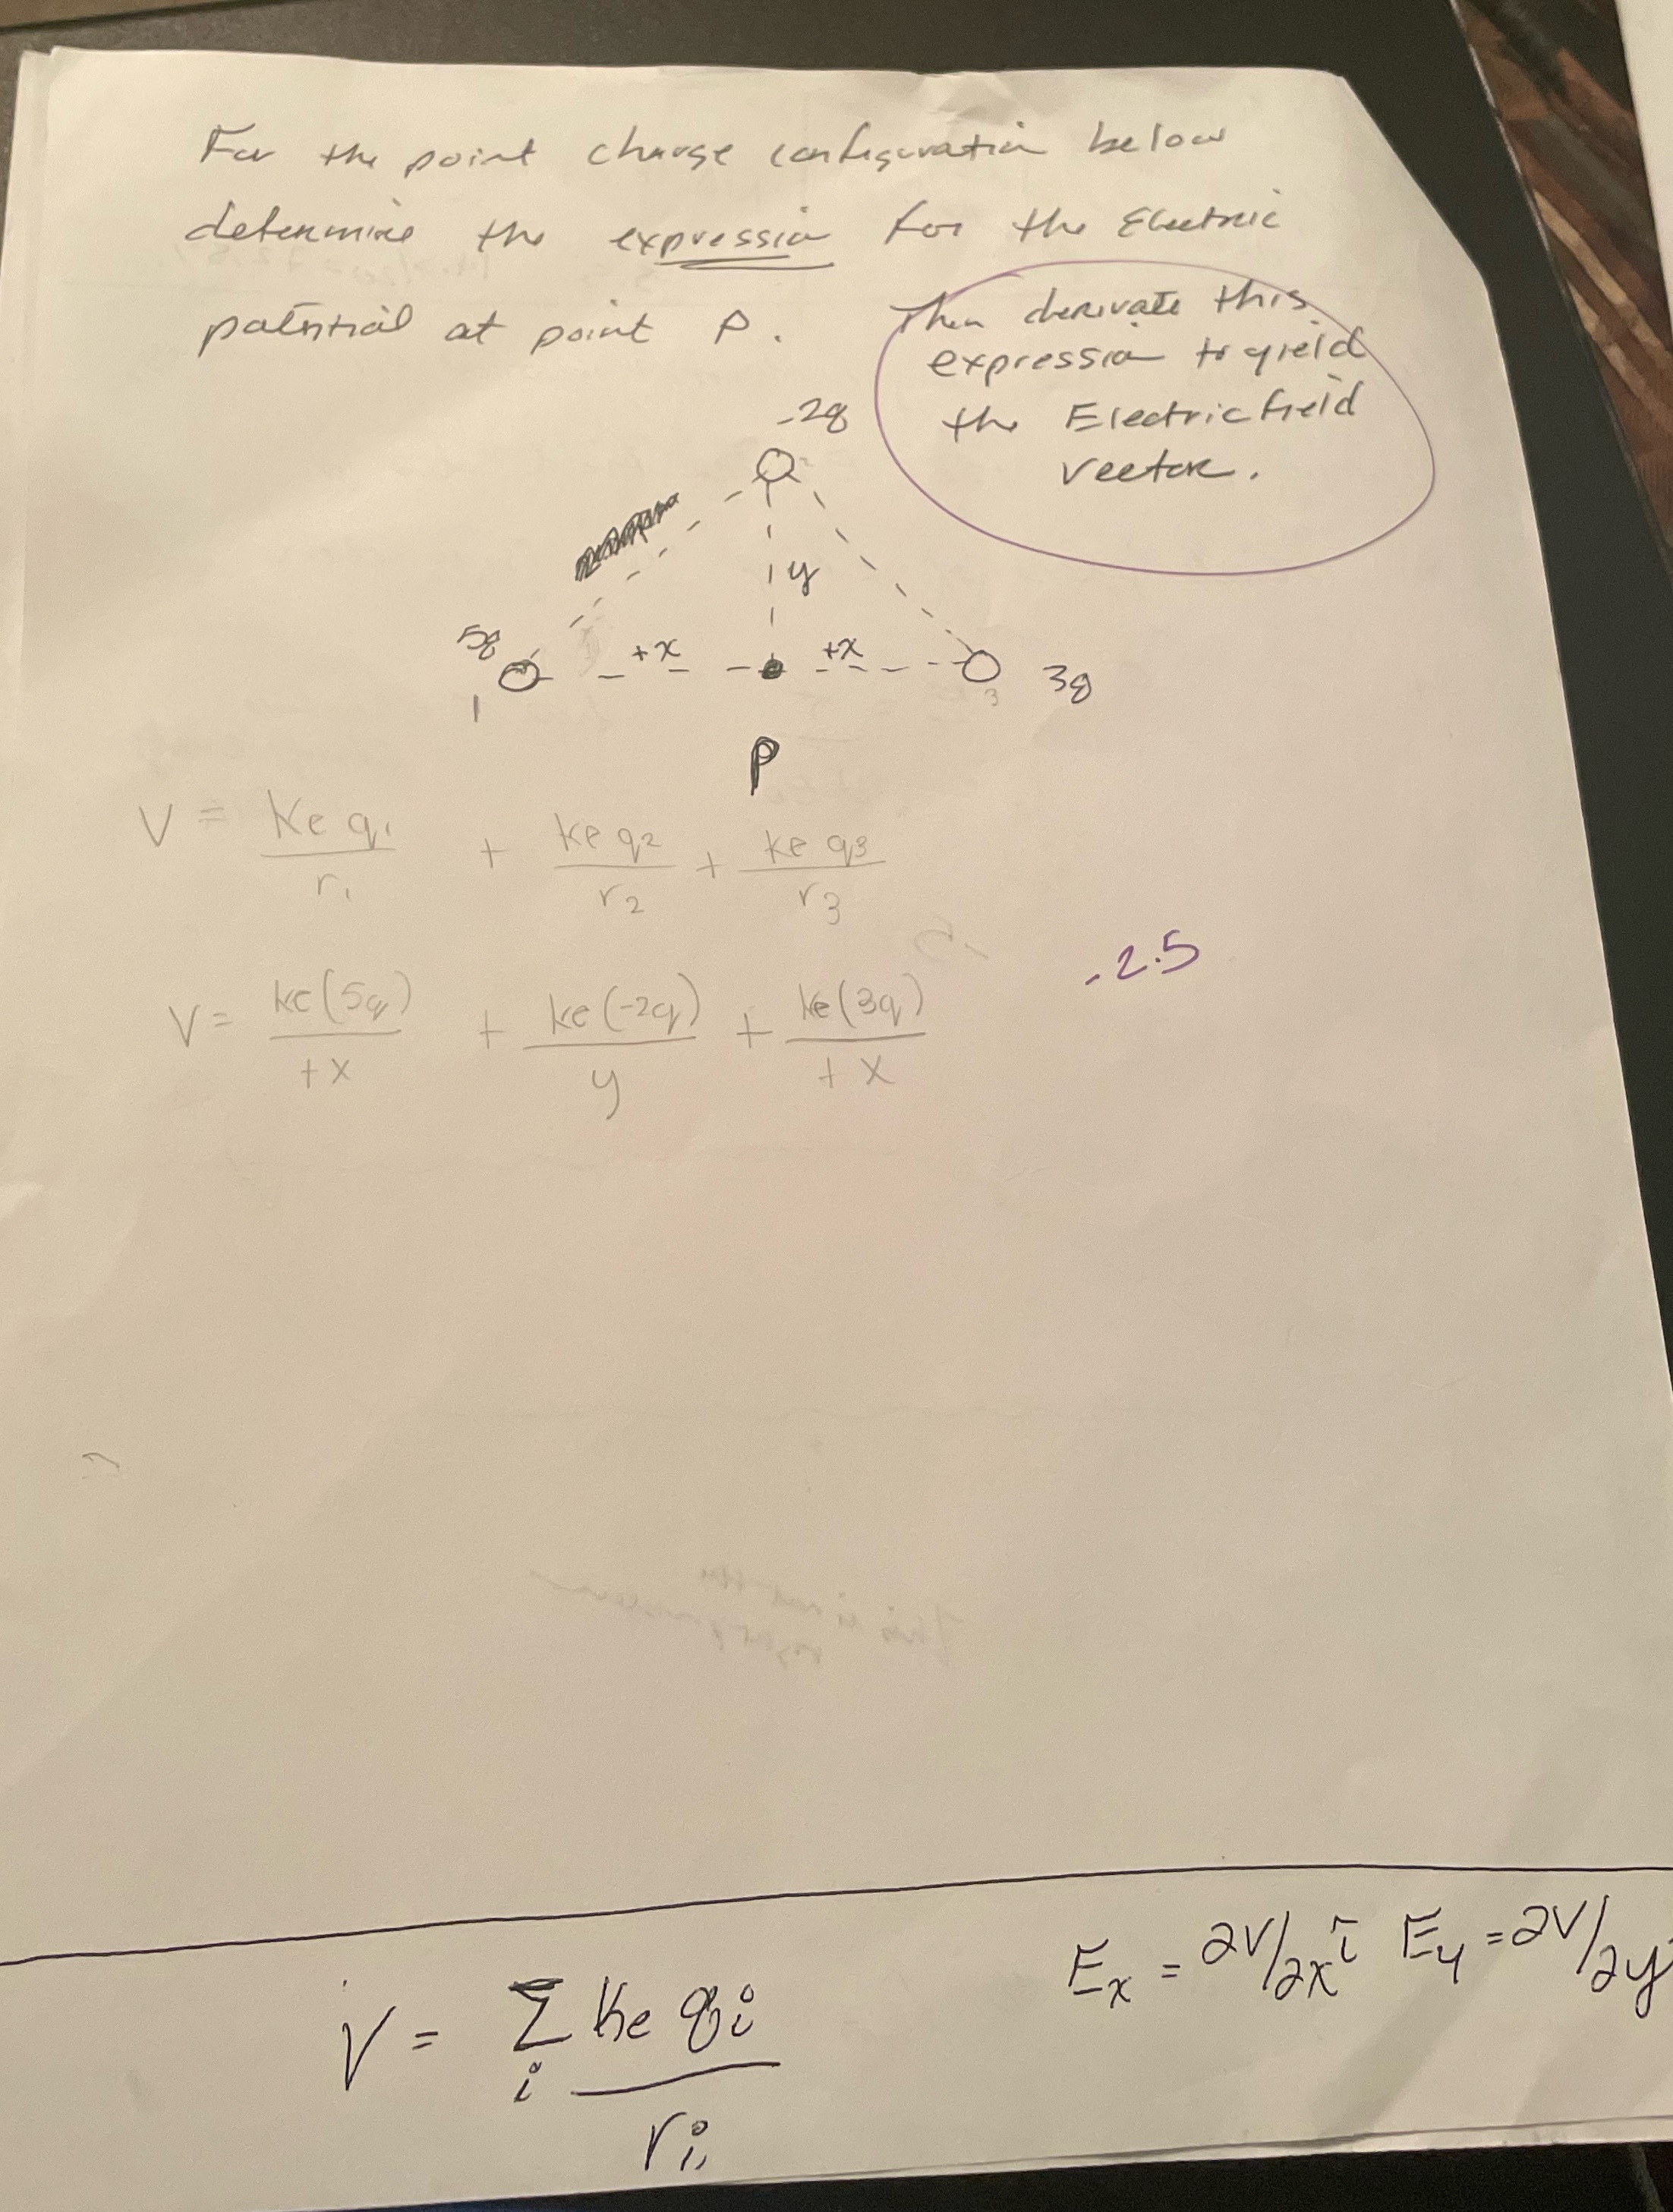 For the point charge configuration below
determine the expression for the Electric
potential at point P.
Then derivate this
expression to yield
the Electric field
vector.
-2q
y
5q
+x
+x
3q
1
3
P
V = ke q1 / r1 + ke q2 / r2 + ke q3 / r3
-2.5
V = ke(5q) / +x + ke(-2q) / y + ke(3q) / +x
Ex = ∂V/∂x î Ey = ∂V/∂y
V = Σi ke qi / ri